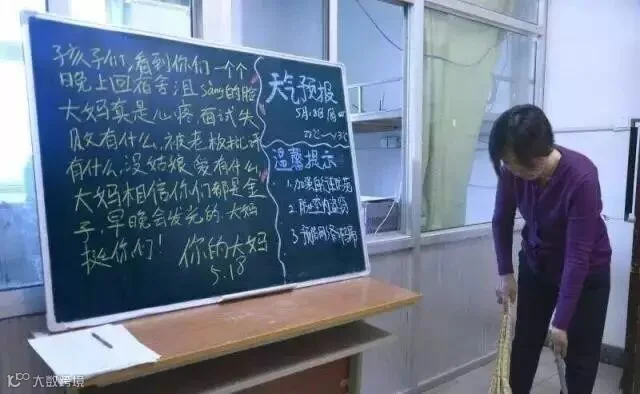 孩子们，看到你们一个个
晚上回宿舍沮sang的脸
大妈真是心疼面试失
败有什么，被老板批评
有什么，没姑娘爱有什么
大妈相信你们都是金
子，早晚会发光的，大妈
挺你们！
你的大妈
5.18
天气预报
5月18日 周四
22℃
温馨提示
1.加强
2.防
3.预防
大数跨境